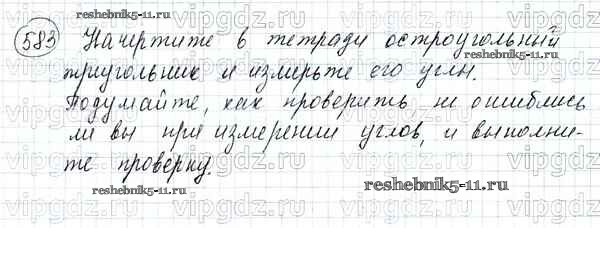 583 Начертите в тетради остроугольный
треугольник и измерьте его углы.
Подумайте, как проверить не ошиблись
ли вы при измерении углов, и выполни-
те проверку.
reshebnik5-11.ru
reshebnik5-11.ru
reshebnik5-11.ru
vipgdz.ru vipgdz.ru vipgdz.ru vipgdz.ru